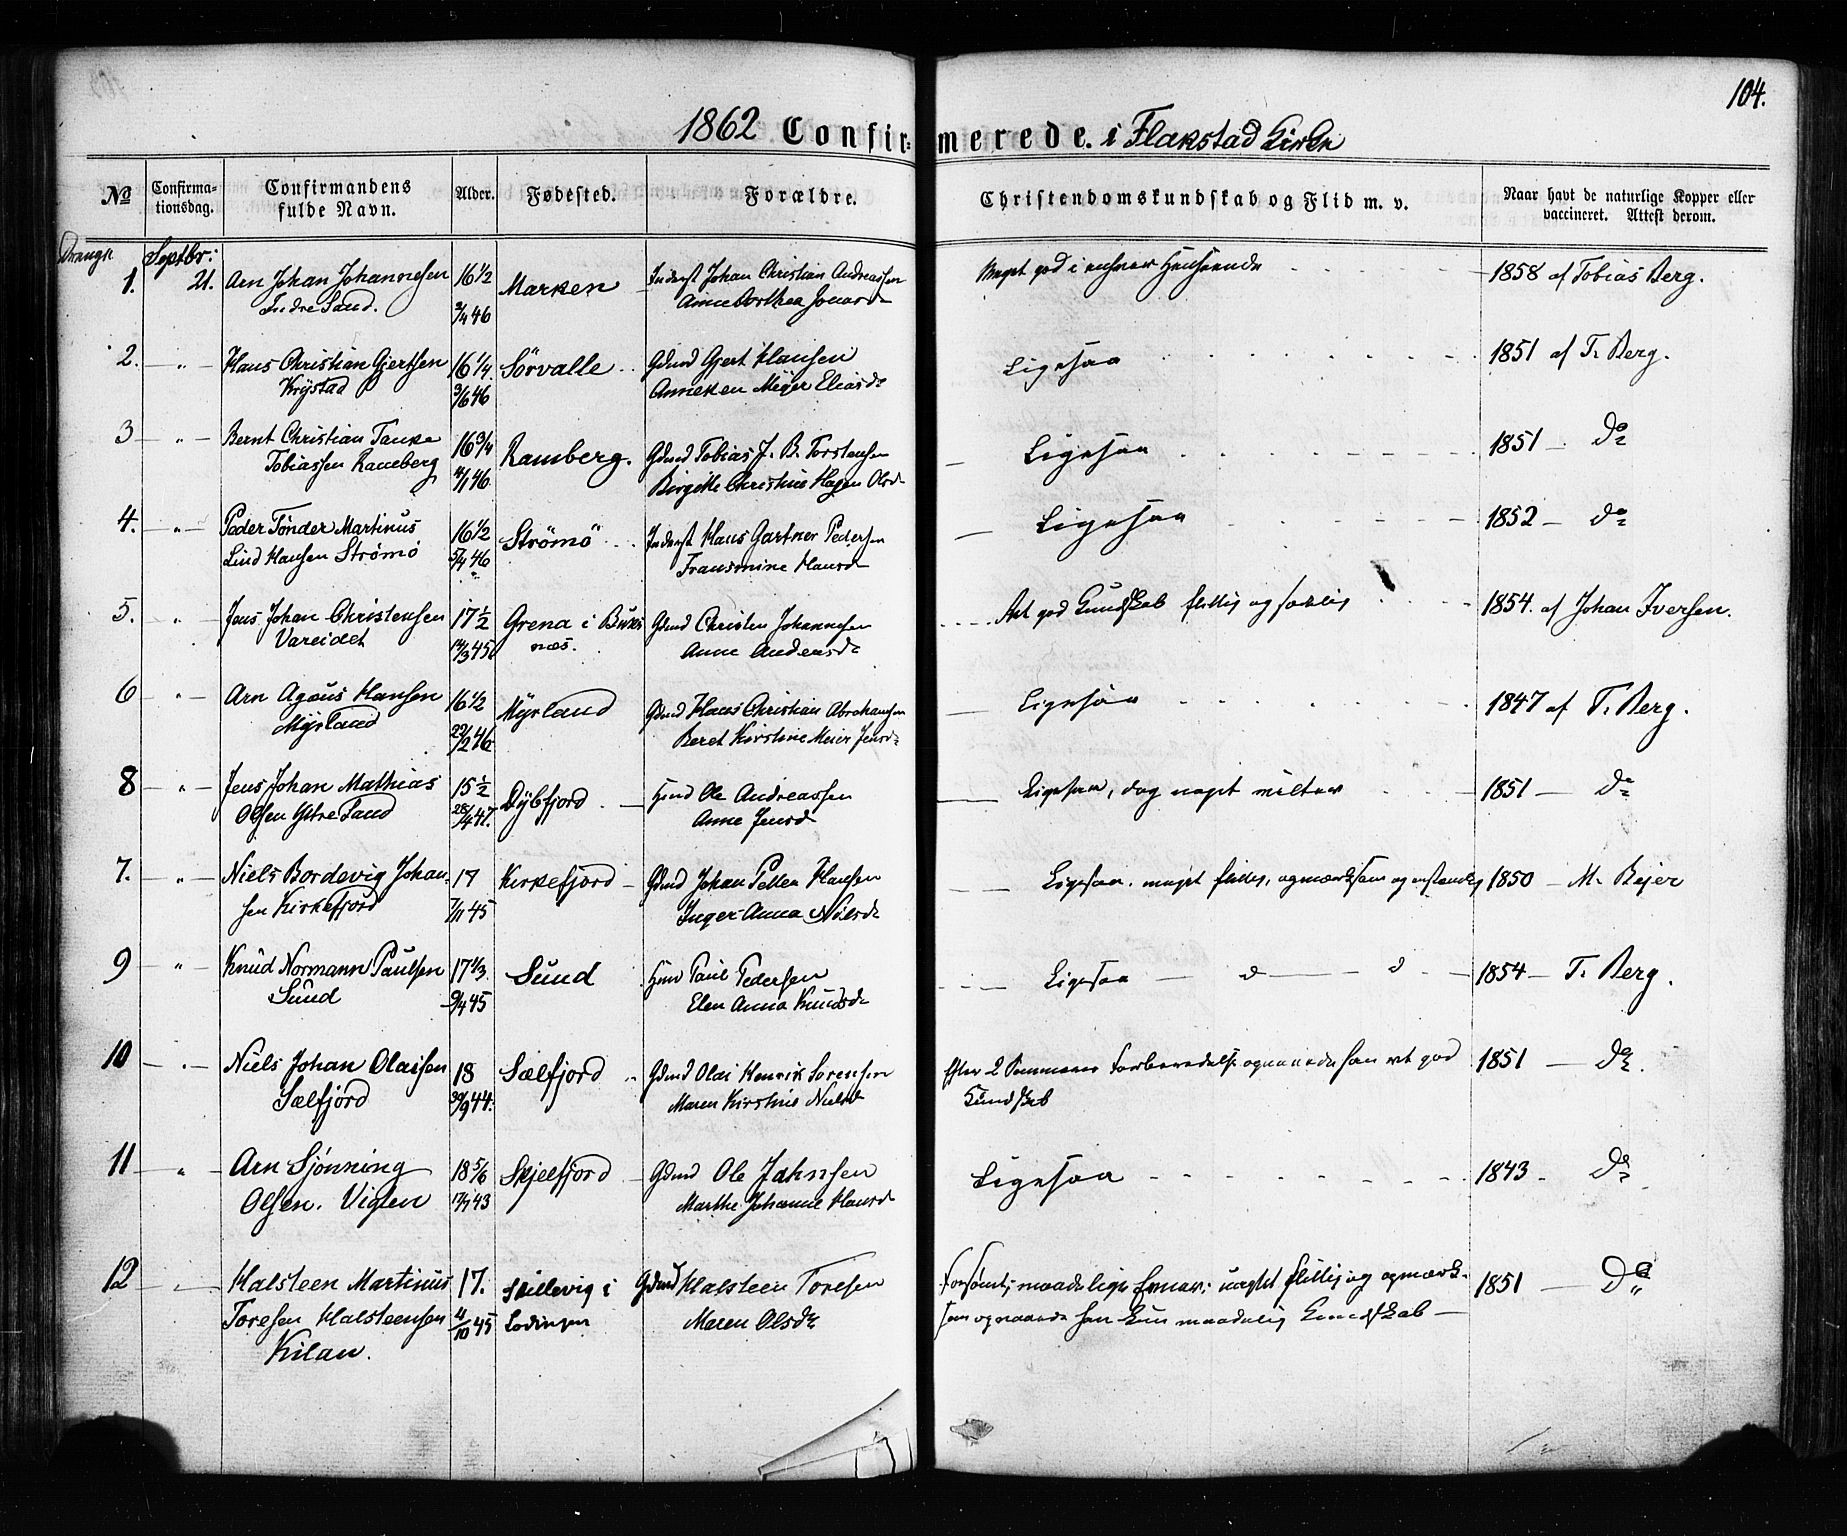 104.
1862 Confirmerede. i Flakstad Kirke
№
Confirmationsdag.
Confirmandens fulde Navn.
Alder.
Fødested.
Forældre.
Christendomskundskab og Flid m. v.
Naar havt de naturlige Kopper eller vaccineret. Attest derom.
Drenge Septbr:
1. 21. Arn Johan Johannesen 16 1/2 Marken Inderst Johan Christian Andreassen Meget god i enhver Henseende 1858 af Tobias Berg.
Indre Sand. 2/4 46 Anne Dorthea Jonasd
2. " Hans Christian Gjertsen 16 1/4 Sörvalle Gdmd Gjert Hansen Ligesaa 1851 af T. Berg.
Krystad 3/6 46 Anneken Meyer Eliasd
3 " Bernt Christian Tanke 16 3/4 Ramberg. Gdmd Tobias J. B. Torstensen Ligesaa 1851 Do
Tobiassen Ramberg 4/1 46 Birgitte Christine Hagen Olsd
4. " Peder Tønder Martinus 16 1/2 Strömö Inderst Hans Gartner Pedersen Ligesaa 1852 do
Lind Hansen Strömö 5/4 46 Fransmine Hansd
5. " Jens Johan Christensen 17 1/2 Grena i Buxnæs. Gdmd Christen Johannesen Ret god Kundskab flittig og sædelig 1854 af Johan Iversen.
Vareidet 14/3 45 Anne Andersd
6 " Arn Agaus Hansen 16 1/2 Myrland Gdmd Hans Christian Abrahamsen Ligesaa 1847 af T. Berg.
Myrland 22/2 46 Beret Kirstine Meier Jensd
8 " Jens Johan Mathias 15 1/2 Dybfjord Hmd Ole Andreassen Ligesaa, dog meget 1851 Do
Olsen Ytre Sand 28/4 47. Anne Jensd
7. " Niels Bordevig Johan- 17 Kirkefjord Gdmd Johan Petter Hansen Ligesaa. meget flittig, opmærksom og anstændig 1850 M. Bejer
sen Kirkefjord 7/11 45 Inger Anna Nilsd
9 " Knud Normann Paulsen 17 1/3 Sund Hmd Paul Pedersen Ligesaa d d 1854 T. Berg.
Sund 9/4 45 Elen Anna Knudsd
10 " Niels Johan Olaisen 18 Sælfjord Gdmd Olai Henrik Sørensen Efter 2 Sommeres Forberedelse opnaaede han ret god 1851 Do
Sælfjord 30/9 44. Maren Kirstine Nielsd Kundskab
11 " Arn Sjönning 18 5/6 Skjelfjord Gdmd Ole Jahnsen Ligesaa 1843 Do
Olsen. Vigten 17/11 43 Marthe Johanne Hansd
12 " Halsteen Martinus 17. Skillevig i Gdmd Halsteen Toresen Forsømt; maadelige Evner; meget flittig og opmærk- 1851 Do
Toresen Halsteensen 11/10 45 Lødingen Maren Olsdr som opnaaede han kun maadelig Kundskab
Kilan.